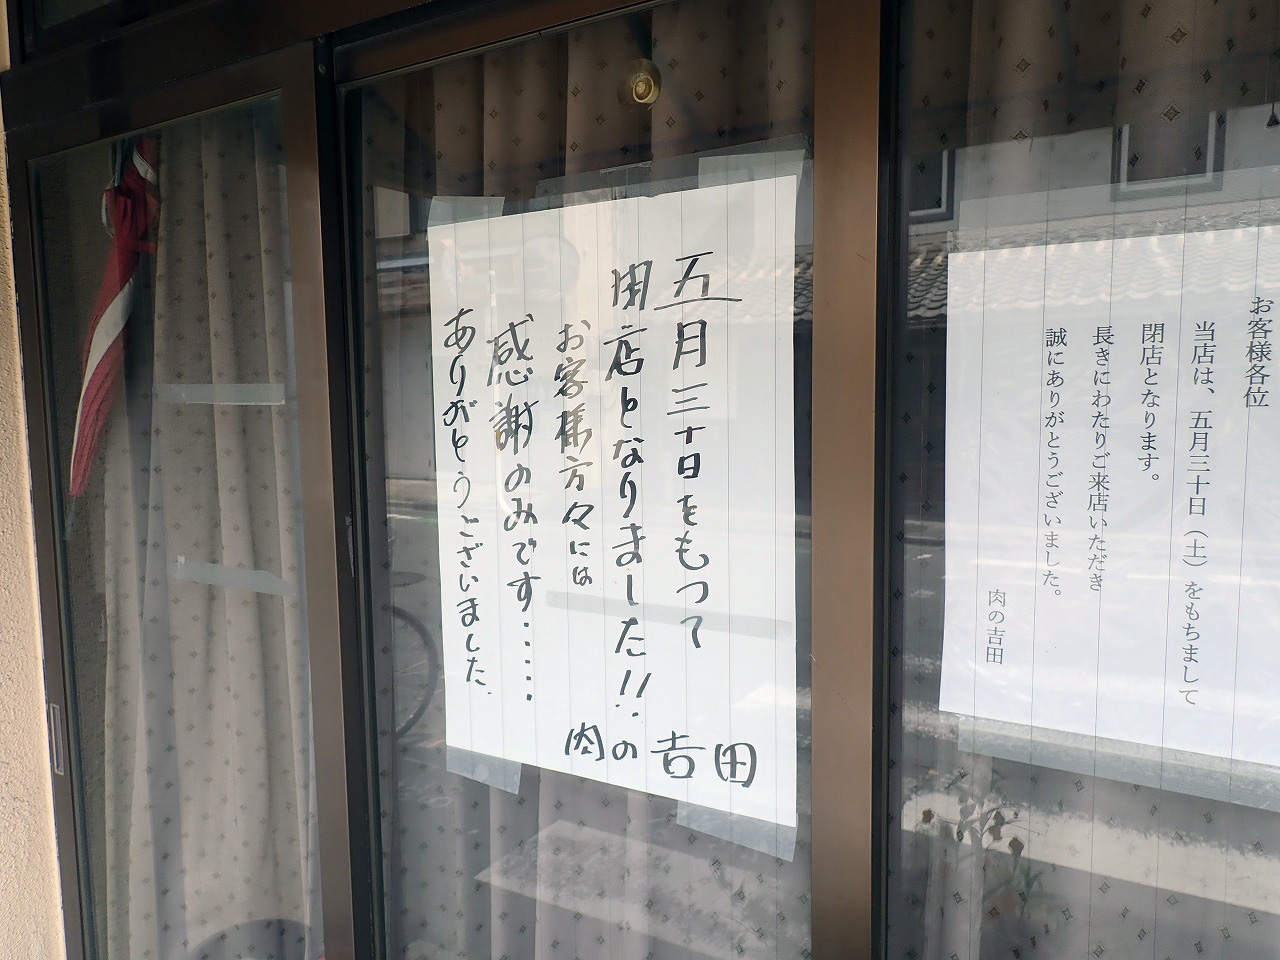 五月三十日をもって
閉店となりました!!
お客様方々には
感謝のみです・・・・・
ありがとうございました.
肉の吉田
お客様各位
当店は、五月三十日（土）をもちまして
閉店となります。
長きにわたりご来店いただき
誠にありがとうございました。
肉の吉田